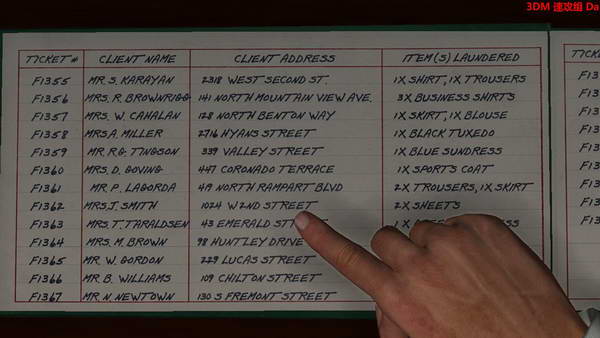 3DM 速攻组 Da
TICKET # CLIENT NAME CLIENT ADDRESS ITEM(S) LAUNDERED TICKET
F1355 MR S. KARAYAN 2318 WEST SECOND ST. 1X SHIRT, 1X TROUSERS F13
F1356 MRS. R. BROWNRIGG 141 NORTH MOUNTAIN VIEW AVE. 3X BUSINESS SHIRTS F13
F1357 MRS. W. CAHALAN 128 NORTH BENTON WAY 1X SKIRT, 1X BLOUSE F13
F1358 MRS A. MILLER 2716 HYANS STREET 1X BLACK TUXEDO F13
F1359 MR. R.G. TINGSON 339 VALLEY STREET 1X BLUE SUNDRESS F13
F1360 MRS. D. GOVING 447 CORONADO TERRACE 1X SPORTS COAT F13
F1361 MR P. LAGORDA 419 NORTH RAMPART BLVD 2X TROUSERS, 1X SKIRT F13
F1362 MRS J. SMITH 1024 W 2ND STREET 2X SHEETS F13
F1363 MRS. T. TARALDSEN 43 EMERALD STREET 1X
F1364 MRS. M. BROWN 98 HUNTLEY DRIVE
F1365 MR W. GORDON 229 LUCAS STREET
F1366 MR B. WILLIAMS 109 CHILTON STREET
F1367 MR N. NEWTOWN 130 S FREMONT STREET